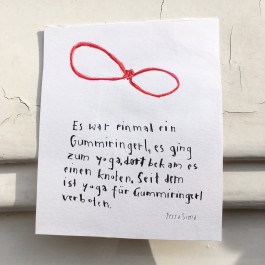 Es war einmal ein
Gummiringerl, es ging
zum yoga, dort bekam es
einen knoten. Seit dem
ist yoga für Gummiringerl
verboten.